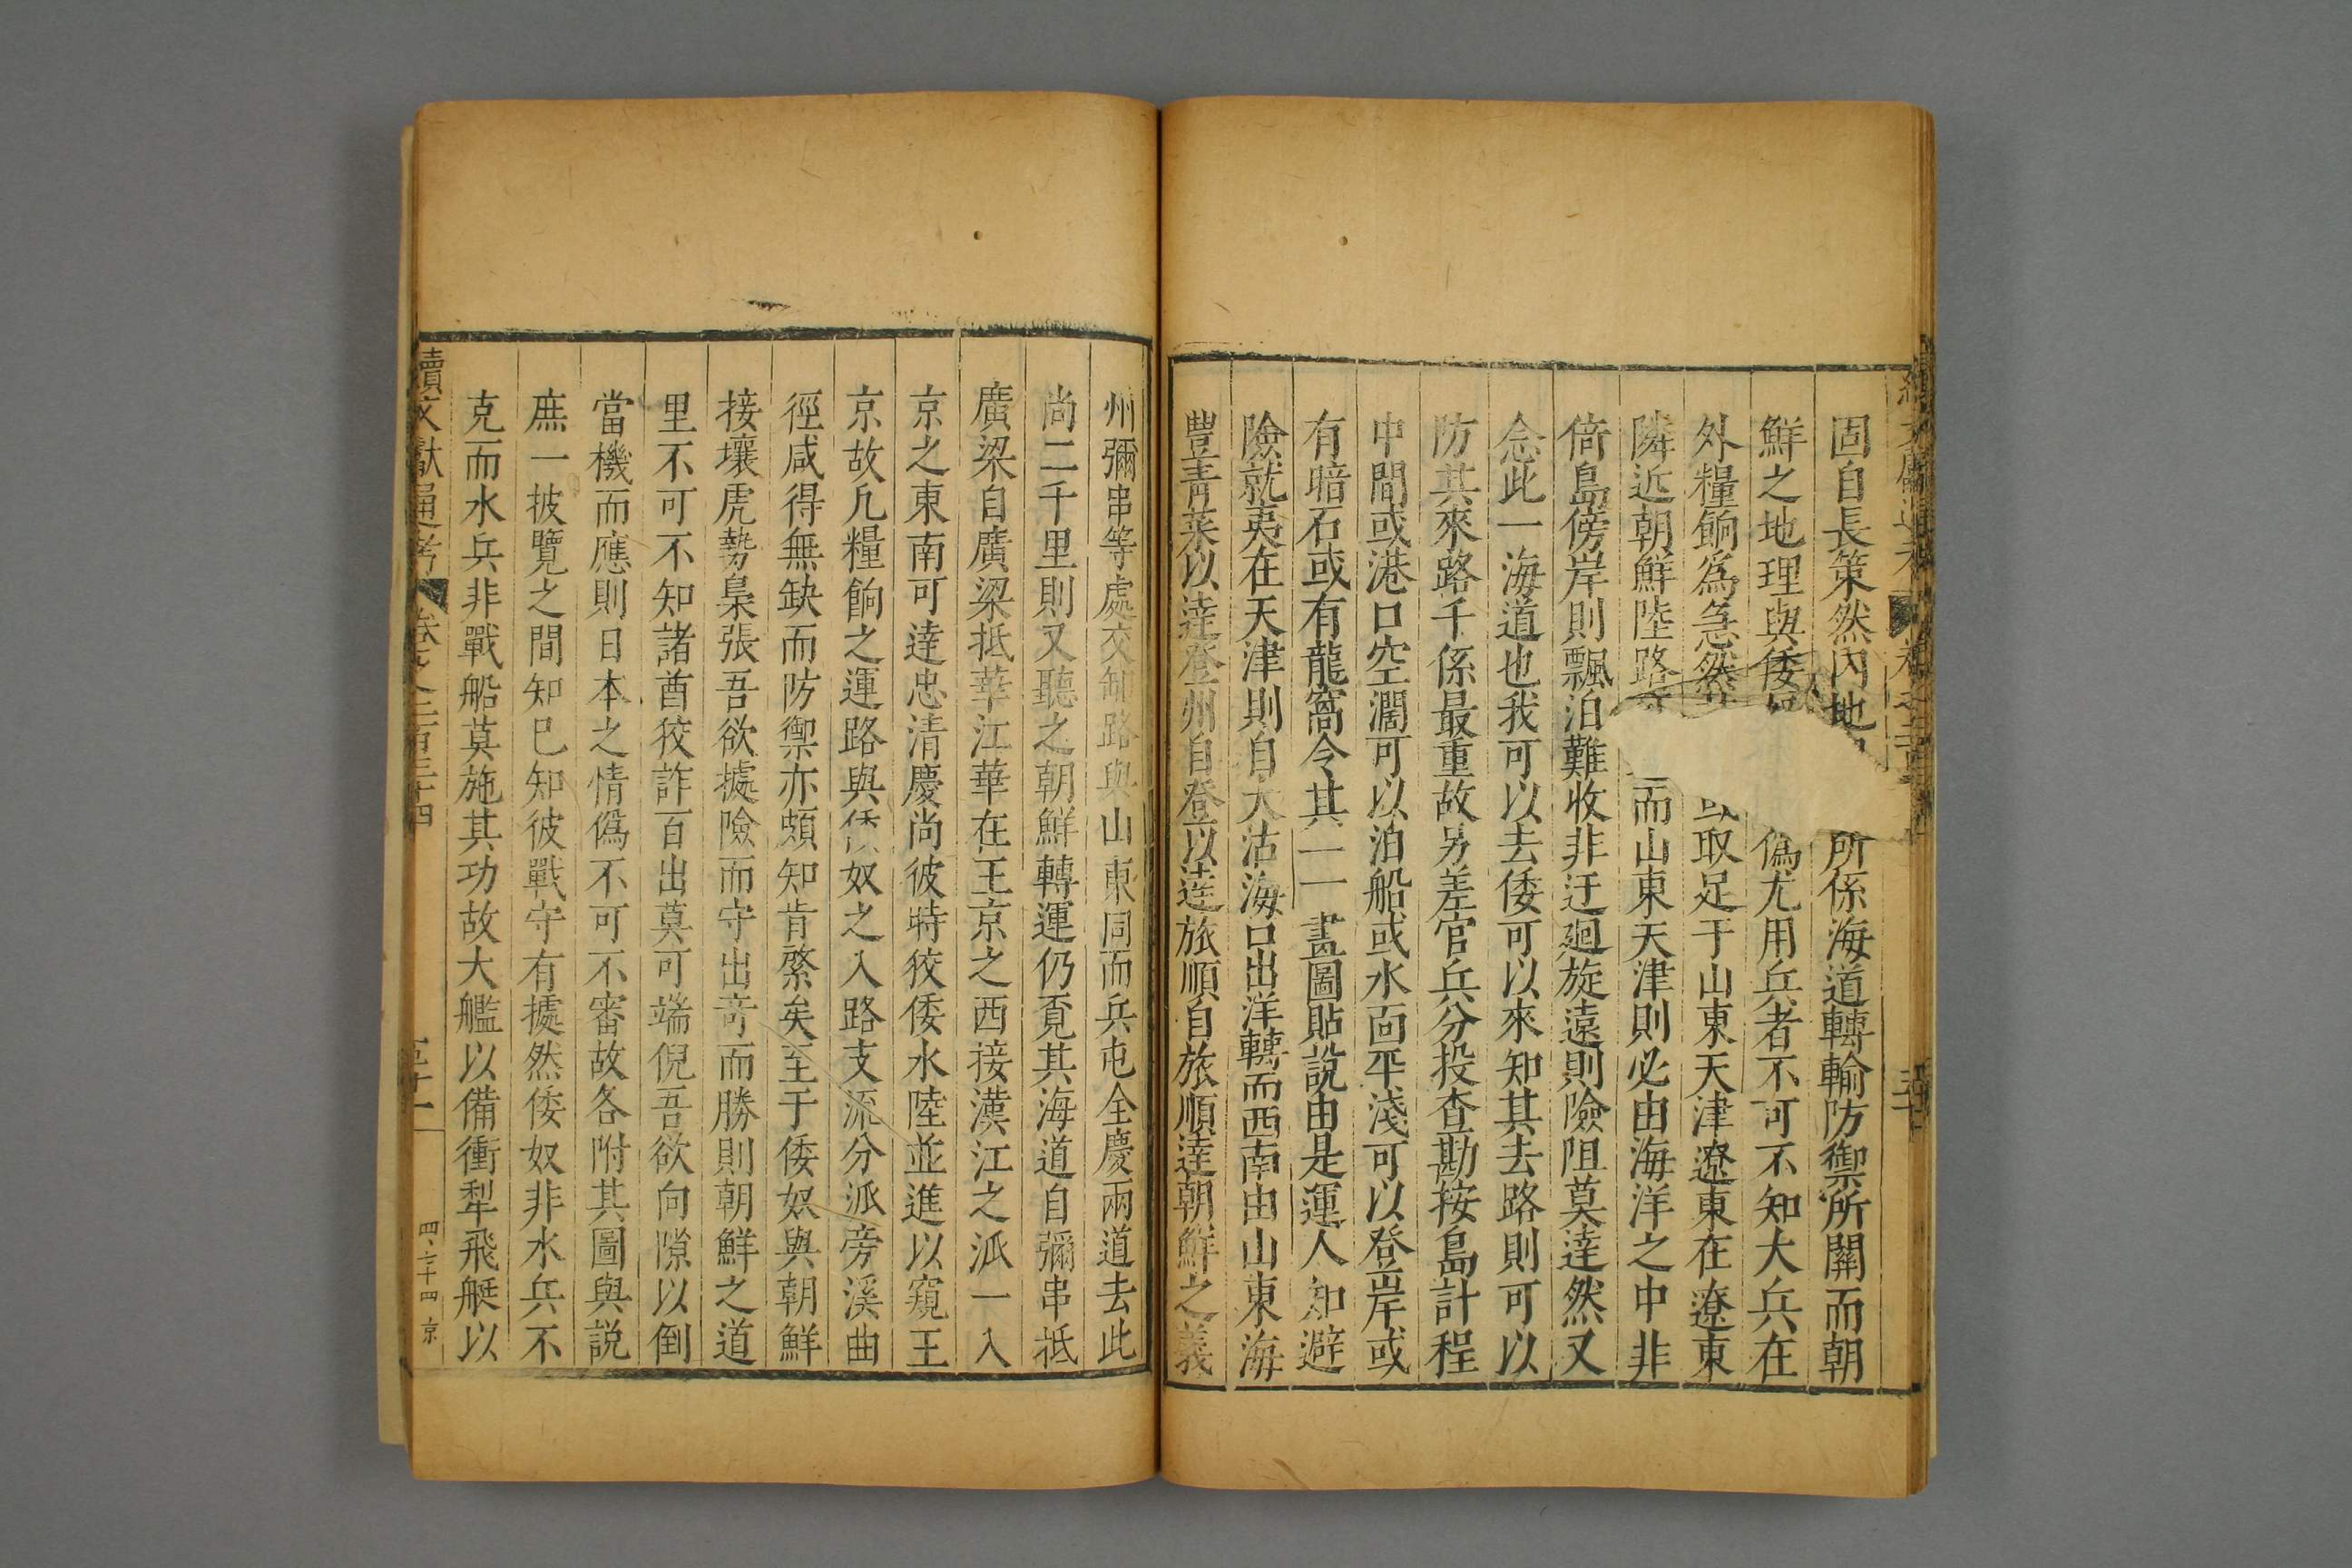 固自長策然內地所係海道轉輸防禦所關而朝
鮮之地理與倭偽尤用兵者不可不知大兵在
外糧餉為急然取足于山東天津遼東在遼東
隣近朝鮮陸路而山東天津則必由海洋之中非
倚島傍岸則飄泊難收非迂廻旋遠則險阻莫達然又
念此一海道也我可以去倭可以來知其去路則可以
防其來路千係最重故另差官兵分投查勘按島計程
中間或港口空濶可以泊船或水面平淺可以登岸或
有暗石或有龍窩令其一一畫圖貼說由是運人知避
險就夷在天津則自大沽海口出洋轉而西南由山東海
豐青萊以達登州自登以達旅順自旅順達朝鮮之義
州彌串等處交卸路與山東同而兵屯全慶兩道去此
尚二千里則又聽之朝鮮轉運仍覔其海道自彌串抵
廣梁自廣梁抵華江華在王京之西接漢江之派一入
京之東南可達忠清慶尚彼時狡倭水陸並進以窺王
京故凡糧餉之運路與倭奴之入路支流分派旁溪曲
徑咸得無缺而防禦亦頗知肯綮矣至于倭奴與朝鮮
接壤虎勢梟張吾欲據險而守出竒而勝則朝鮮之道
里不可不知諸酋狡詐百出莫可端倪吾欲向隙以倒
當機而應則日本之情偽不可不審故各附其圖與說
庶一披覽之間知已知彼戰守有據然倭奴非水兵不
克而水兵非戰船莫施其功故大艦以備衝犁飛艇以
續文獻通考 卷之二百三十四 五十一 四、三十四 京